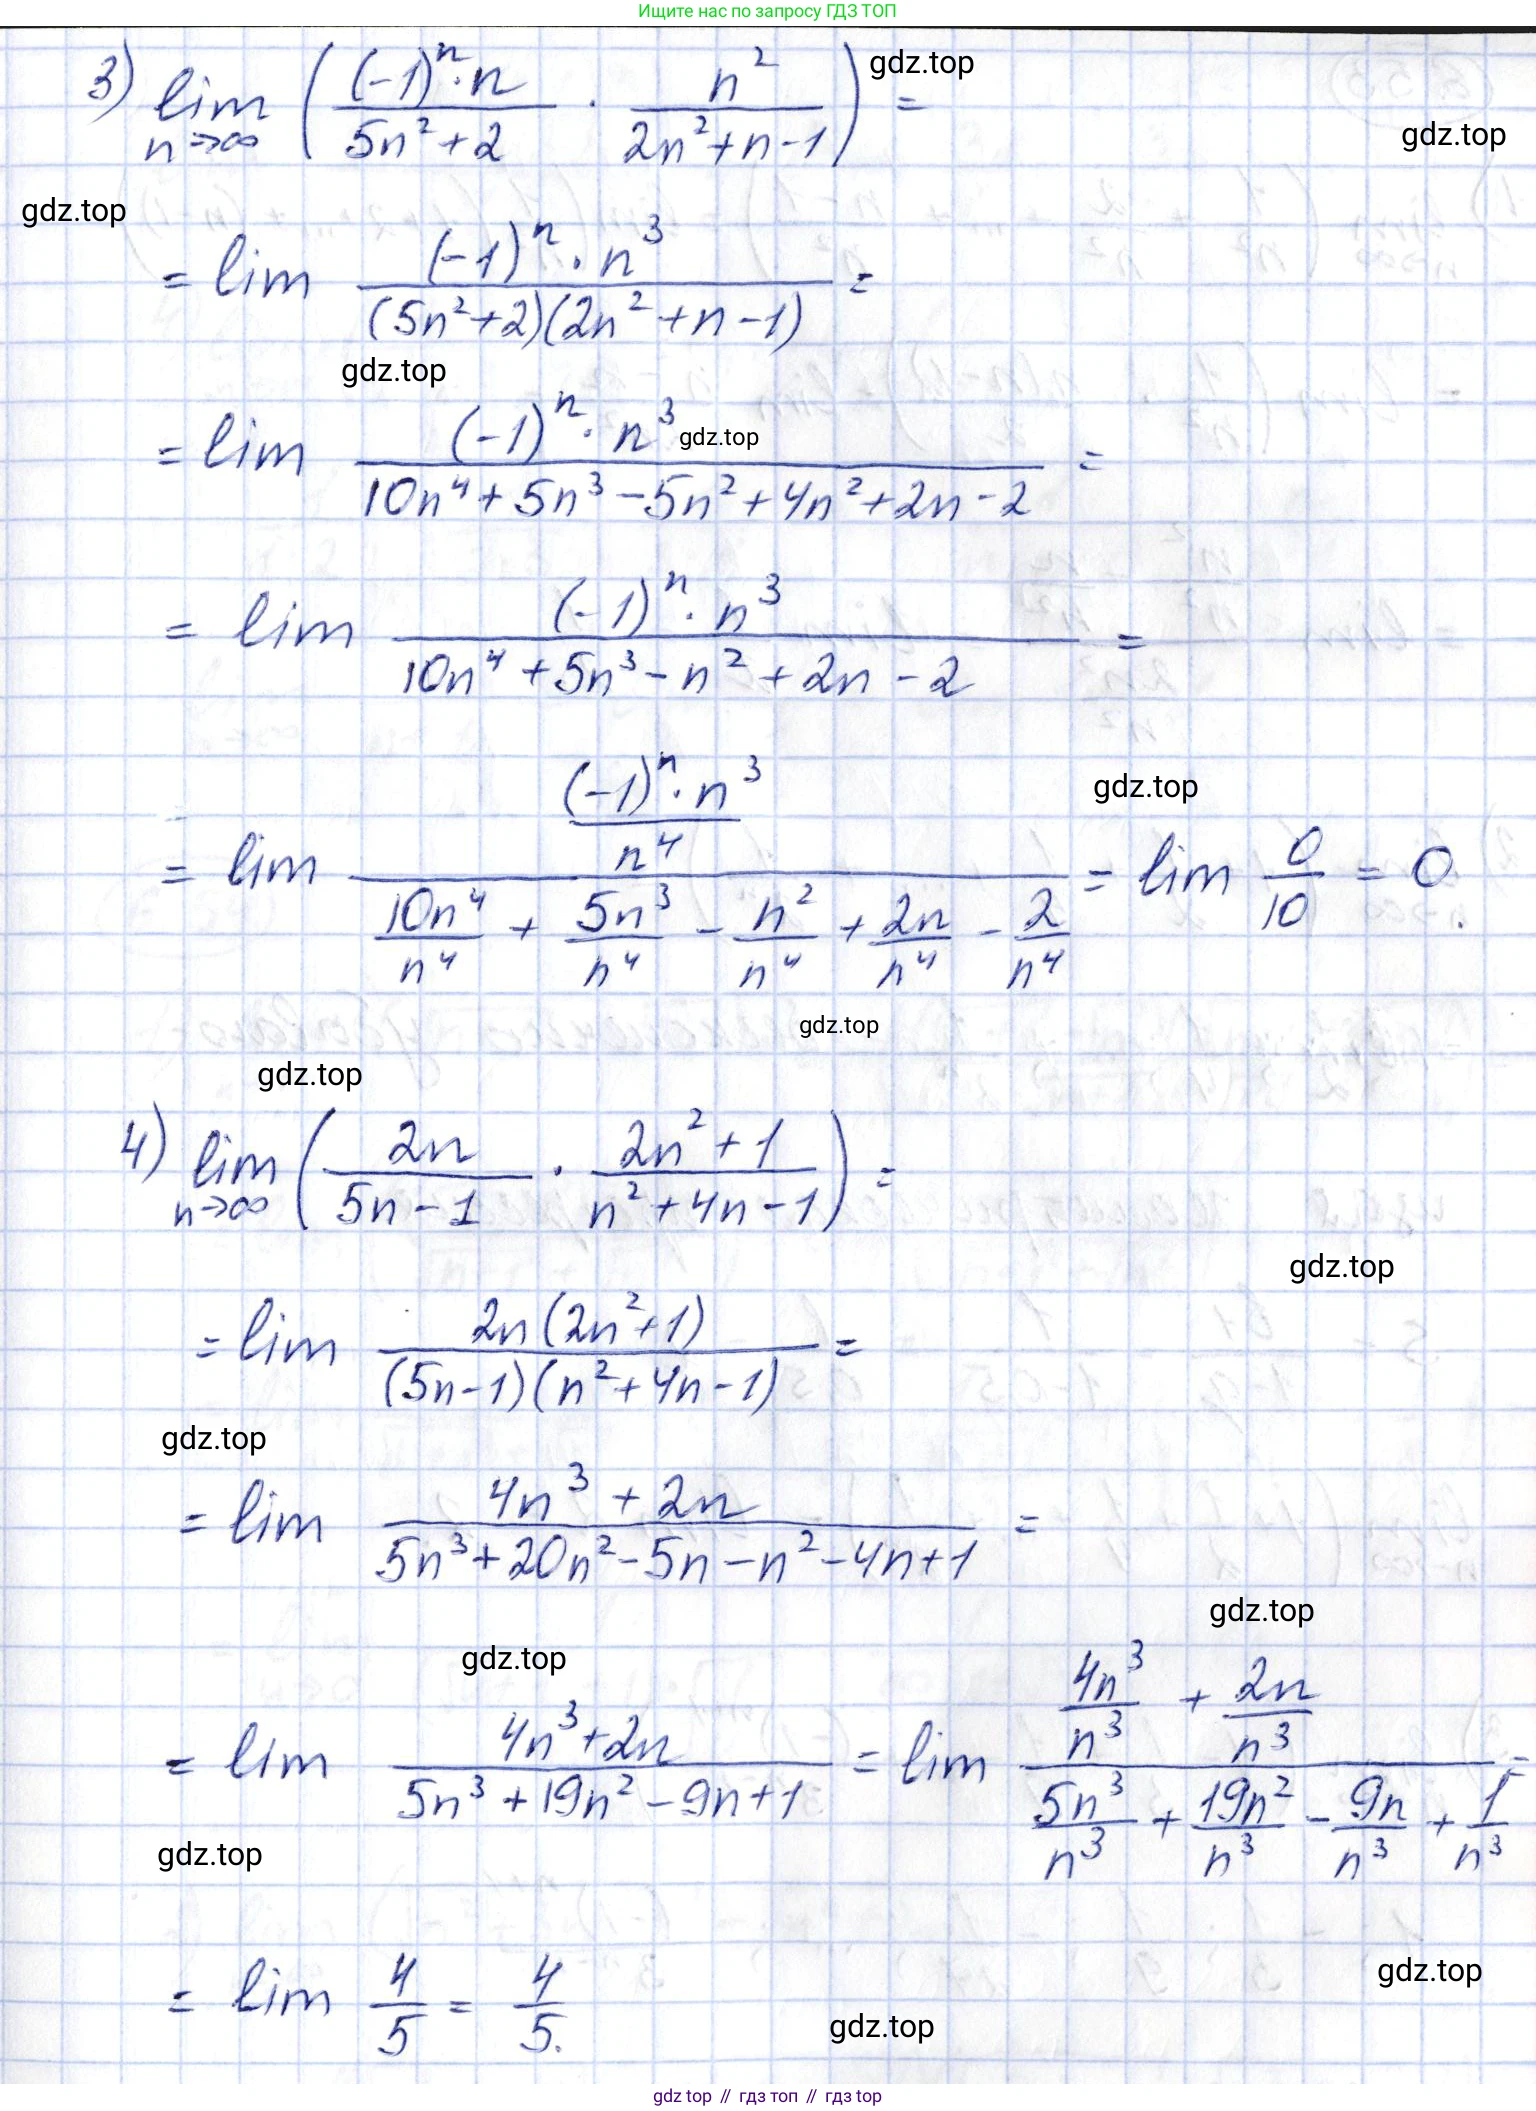 Ищите нас по запросу ГДЗ ТОП
3) lim n→∞ ( (-1)^n · n / (5n² + 2) · n² / (2n² + n - 1) ) =
gdz.top
gdz.top
gdz.top
= lim (-1)^n · n³ / ((5n² + 2)(2n² + n - 1)) =
gdz.top
= lim (-1)^n · n³ / (10n⁴ + 5n³ - 5n² + 4n² + 2n - 2) =
gdz.top
= lim (-1)^n · n³ / (10n⁴ + 5n³ - n² + 2n - 2) =
gdz.top
= lim ((-1)^n · n³ / n⁴) / (10n⁴/n⁴ + 5n³/n⁴ - n²/n⁴ + 2n/n⁴ - 2/n⁴) = lim 0/10 = 0.
gdz.top
gdz.top
4) lim n→∞ ( 2n / (5n - 1) · (2n² + 1) / (n² + 4n - 1) ) =
gdz.top
= lim 2n(2n² + 1) / ((5n - 1)(n² + 4n - 1)) =
gdz.top
= lim (4n³ + 2n) / (5n³ + 20n² - 5n - n² - 4n + 1) =
gdz.top
gdz.top
= lim (4n³ + 2n) / (5n³ + 19n² - 9n + 1) = lim (4n³/n³ + 2n/n³) / (5n³/n³ + 19n²/n³ - 9n/n³ + 1/n³) =
gdz.top
= lim 4/5 = 4/5.
gdz.top
gdz.top
gdz top // гдз топ // гдз top